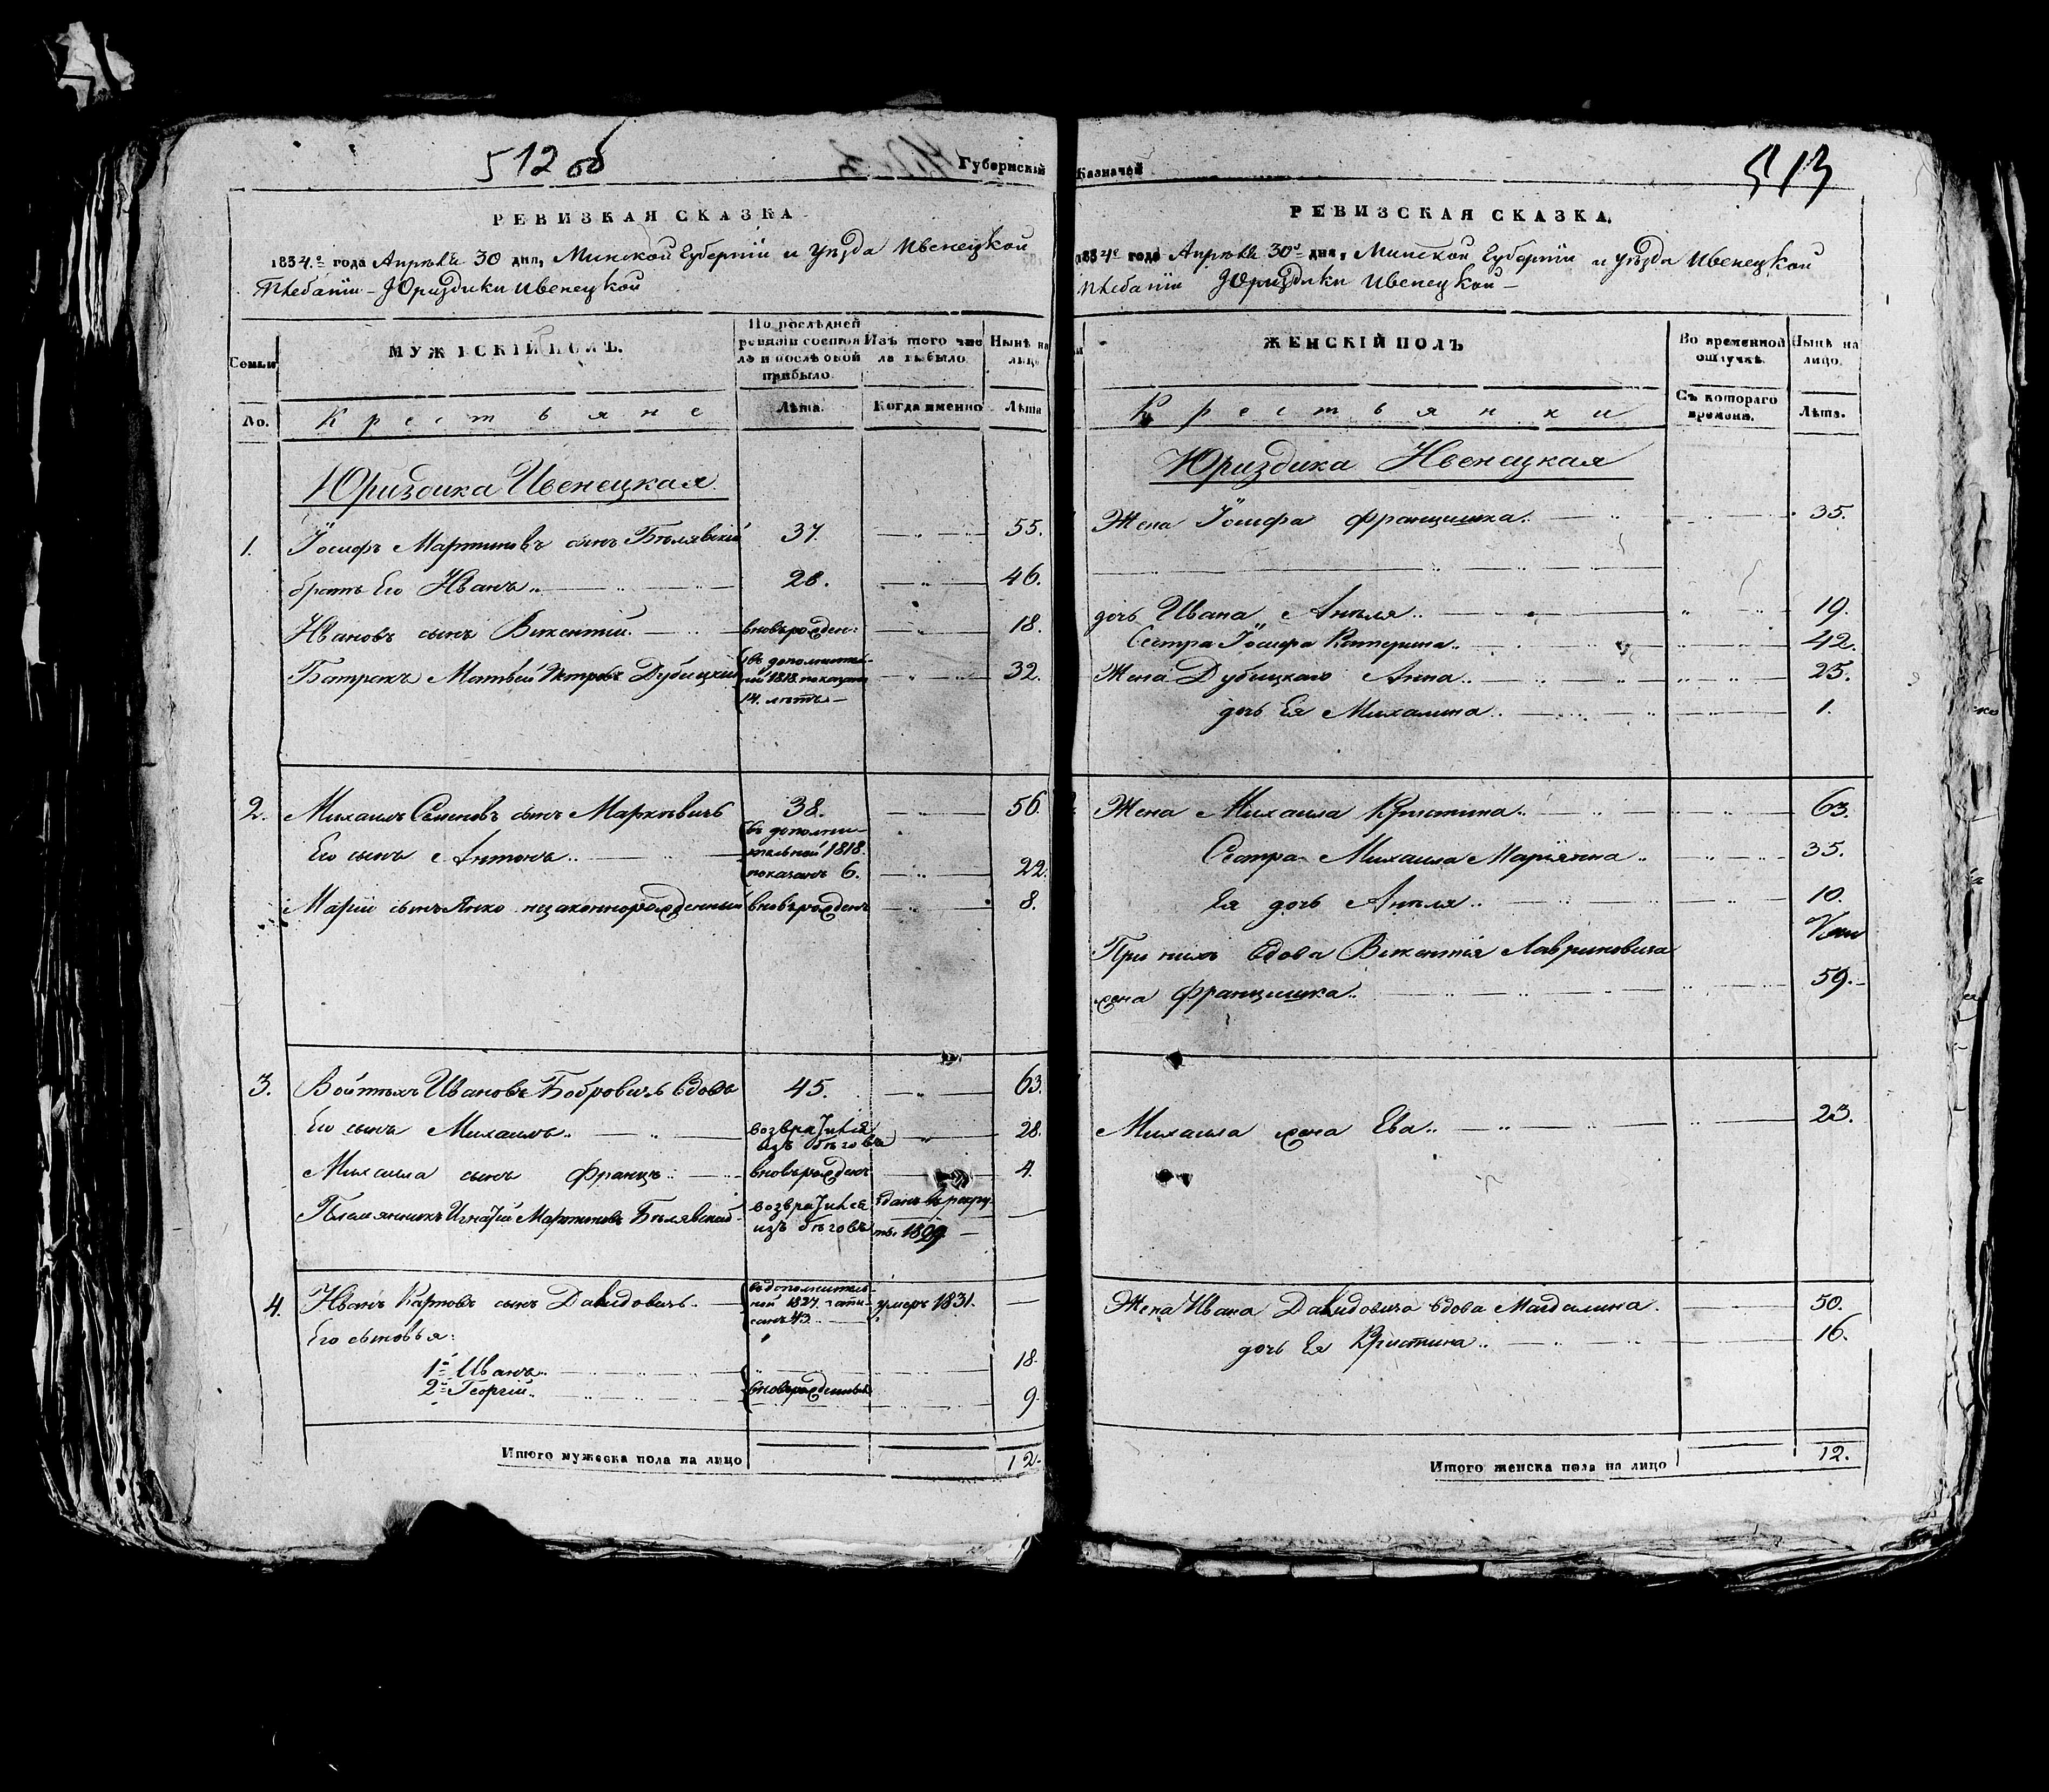 512 об
Губернскій
РЕВИЗКАЯ СКАЗКА
1834.го года Апрѣля 30 дня, Минской Губерніи и уѣзда Ивенецкой
Плебаніи - Юриздики Ивенецкой
Семьи
МУЖЕСКІЙ ПОЛЪ.
По послѣдней ревизіи состоя ло и послѣ оной прибыло
Изъ того чис ла выбыло
Нынѣ на лицо
No.
Крестьяне
Лѣта.
Когда именно
Лѣта
Юриздика Ивенецкая
1. Іосифъ Мартиновъ сынъ Бѣлявскій 37. 55.
братъ Его Иванъ 28. 46.
Ивановъ сынъ Викентій вновьрожден: 18.
Батракъ Матвей Петровъ Дубицкій въ дополнител- 32.
ной 1818 показанъ
14. лѣтъ
2. Михаилъ Семеновъ сынъ Маркевичъ 38. 56
Его сынъ Антонъ въ дополни-
тельной 1818.
показанъ 6. 22.
Маріи сынъ Янко незаконнорожденный вновьрожденъ 8.
3. Войтехъ Ивановъ Бобровичъ вдовъ 45. 63.
Его сынъ Михаилъ возвратился 28.
изъ бѣговъ
Михаила сынъ Францъ вновьрожденъ 4.
Племянникъ Игнатій Мартиновъ Бѣлявскій возвратился отданъ въ рекру-
изъ бѣговъ ты 1829
4. Иванъ Карповъ сынъ Давидовичъ въдополнител-
ной 1827. запи- умеръ 1831.
санъ 43.
Его сыновья:
1й Иванъ 18.
2й Георгій вновьрожденные 9.
Итого мужеска пола на лицо 12.
Казначей
513
РЕВИЗСКАЯ СКАЗКА.
1834го года Апрѣля 30го дня, Минской Губерніи и уѣзда Ивенецкой
Плебаніи Юриздики Ивенецкой
ЖЕНСКІЙ ПОЛЪ
Во временной отлучкѣ.
Нынѣ на лицо.
Крестьянки
Съ котораго времени.
Лѣта.
Юриздика Ивенецкая
Жена Іосифа Францишка 35.
дочь Ивана Анеля 19.
Сестра Іосифа Катерина 42.
Жена Дубицкаго Анна 25.
дочь Ея Михалина 1.
Жена Михаила Кристина 63.
Сестра Михаила Маріянна 35.
Ея дочь Анеля 10.
При нихъ вдова Викентія Лавриновича
жена Францишка 59.
Михаила жена Ева 23.
Жена Ивана Давидовича вдова Магдалина 50.
дочь Ея Кристина 16.
Итого женска пола на лицо 12.